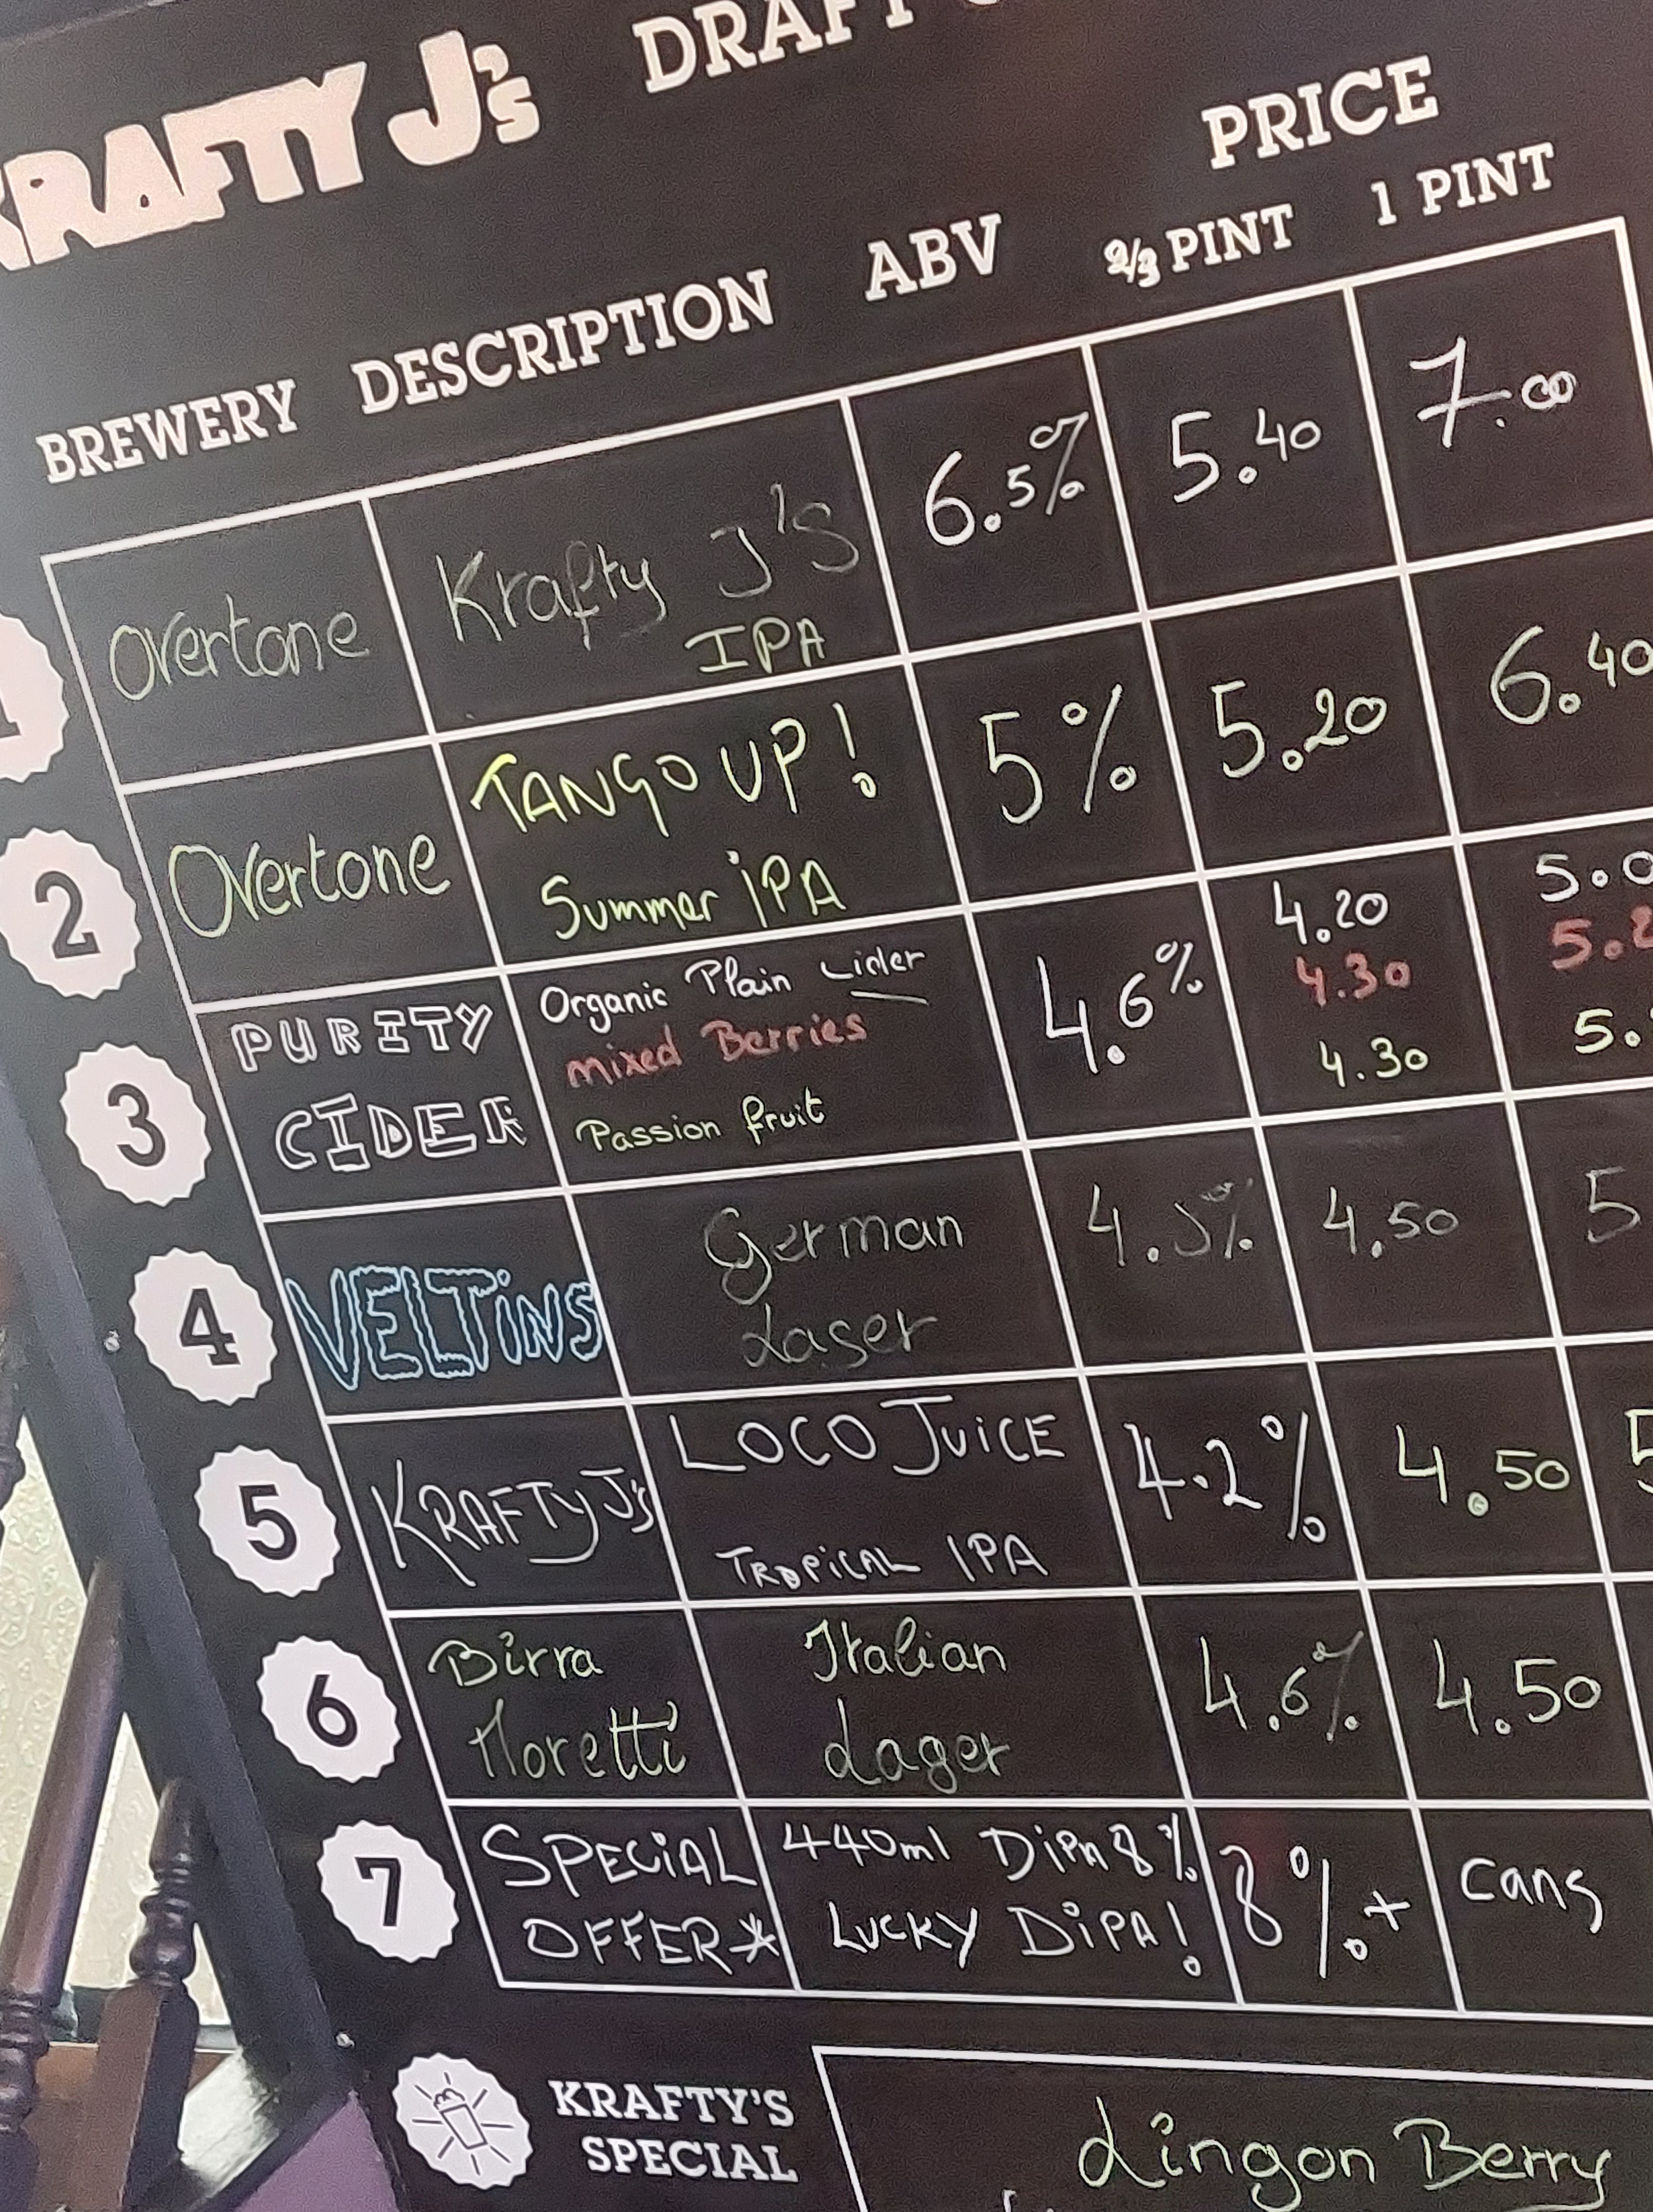 KRAFTY J's DRAFT
PRICE
BREWERY DESCRIPTION ABV 2/3 PINT 1 PINT
1 Overtone Krafty J's IPA 6.5% 5.40 7.00
2 Overtone TANGO UP! Summer IPA 5% 5.20 6.40
3 PURITY CIDER Organic Plain Cider 4.6% 4.20 5.0
mixed Berries 4.30 5.2
Passion fruit 4.30 5.
4 VELTINS German Lager 4.5% 4.50 5
5 KRAFTY J's LOCO JUICE TROPICAL IPA 4.2% 4.50 5
6 Birra Moretti Italian Lager 4.6% 4.50
7 SPECIAL OFFER* 440ml DIPA 8% LUCKY DIPA! 8%+ cans
KRAFTY'S SPECIAL
Lingon Berry